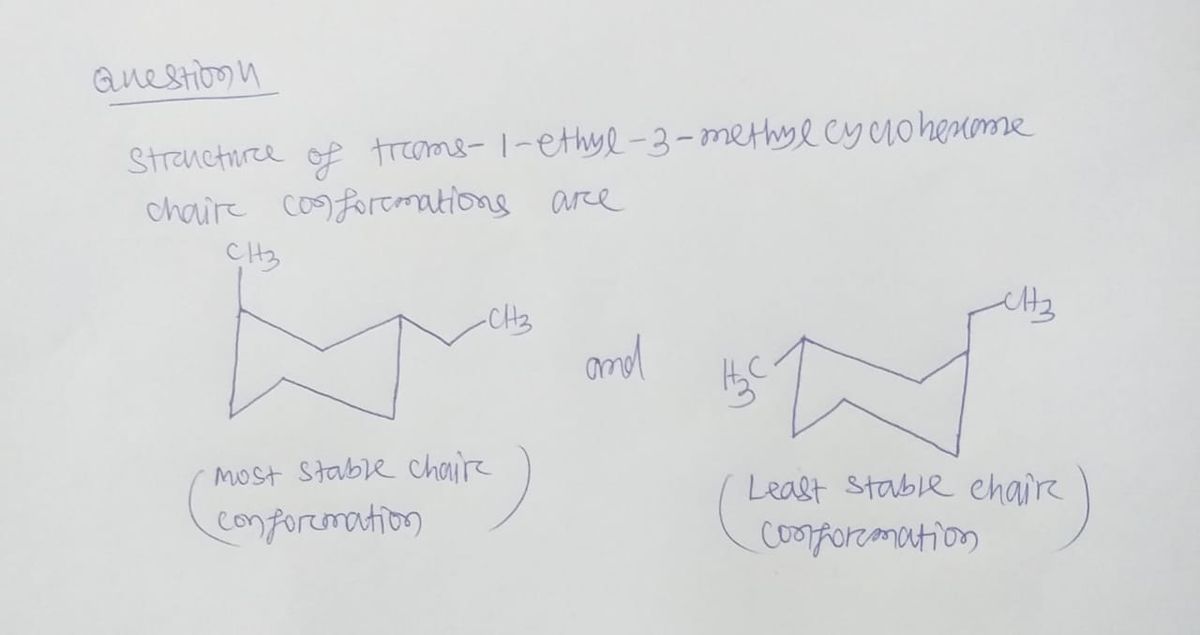 Question
Structure of trans-1-ethyl-3-methyl cyclohexane
chair conformations are
CH3
CH3
and
H3C
CH3
(Most stable chair
conformation)
(Least stable chair
conformation)